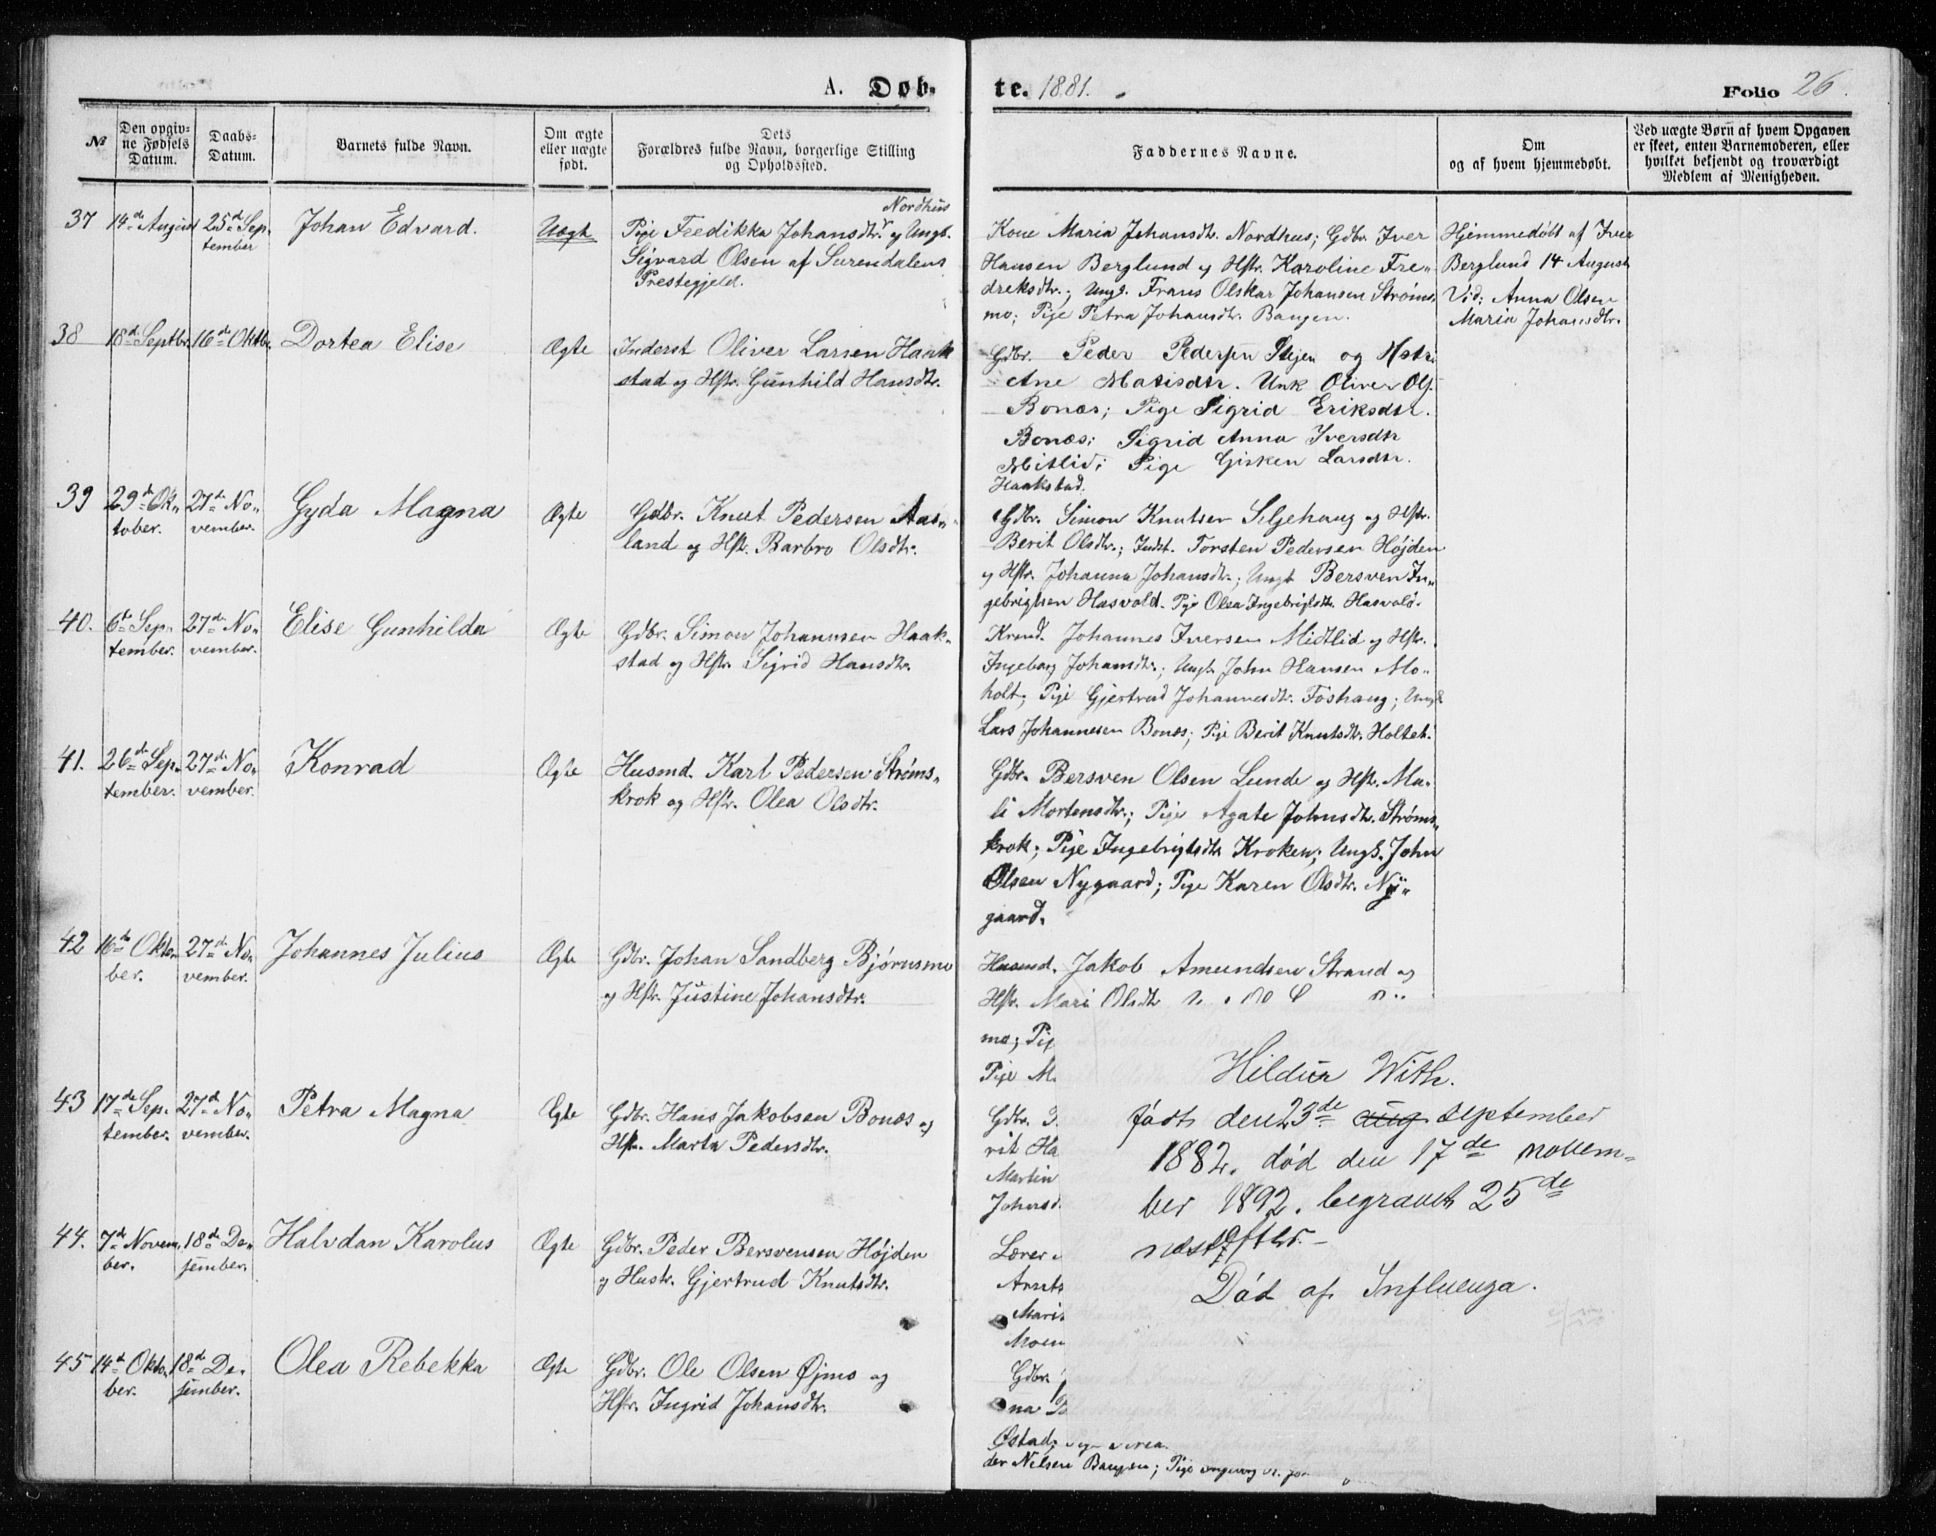 A. Døb- te. 1881. Folio 26.
№ Den opgiv-ne Fødsels Datum. Daabs-Datum. Barnets fulde Navn. Om ægte eller uægte født. Dets Forældres fulde Navn, borgerlige Stilling og Opholdssted. Faddernes Navne. Om og af hvem hjemmedøbt. Ved uægte Børn af hvem Opgaven er skeet, enten Barnemoderen, eller hvilket bekjendt og troværdigt Medlem af Menigheden.
37 14de August 25de Sep-
tember
Johan Edvard.
Uægte
Nordhus
Pige Fredikka Johansdtr. og Ungk.
Sigvard Olsen af Surendalens
Prestegjeld.
Kone Maria Johansdtr. Nordhus; Gdbr. Iver
Hansen Berglund og Hstr. Karoline Fre-
dreksdtr.; Ungk. Frans Olskar Johansen Strøms-
mo; Pige Petra Johansdtr. Baugen.
Hjemmedøbt af Iver
Berglund 14 August
Vid: Anna Olsen
Maria Johansdtr.
38 18de Septbr. 16de Oktbr.
Dortea Elise
Ægte
Inderst Oliver Larsen Haak
stad og Hstr. Gunhild Hansdtr.
Gdbr. Peder Pedersen Stejen og Hstr.
Ane Matisdtr. Unk Oliver Ols.
Bonæs; Pige Sigrid Eriksdtr.
Bonæs; Sigrid Anna Iversdtr
Mitlid; Pige Gisken Larsdtr.
Haakstad.
39 29de Ok- 27de No-
tober. vember.
Gyda Magna
Ægte
Gdbr. Knut Pedersen Aas-
land og Hstr. Barbro Olsdtr.
Gdbr. Simon Knutsen Siljehaug og Hstr.
Berit Olsdtr.; Indst. Torsten Pedersen Højden
og Hstr. Johanna Johansdtr.; Ungk Bersven In-
gebrigtsen Hasvold. Pige Olea Ingebrigtsdtr. Hasvold.
40. 6te Sep- 27de No-
tember. vember.
Elise Gunhilda
Ægte
Gdbr. Simon Johannsen Haak-
stad og Hstr. Sigrid Hansdtr.
Johannes Iversen Midtlid og Hstr.
Ingeborg Johansdtr.; Ungk John Hansen Mo-
holt; Pige Gjertrud Johannesdtr. Foshaug; Ungk
Lars Johannesen Bonæs; Pige Berit Knutsdtr. Holtet.
41. 26de Sep- 27de No-
tember. vember.
Konrad
Ægte
Husmd. Karl Pedersen Strøms-
krok og Hstr. Olea Olsdtr.
Gdbr. Bersven Olsen Lunde og Hstr. Ma-
li Mortensdtr.; Pige Agate Johnsdtr. Strøms-
krok; Pige Ingebrigtsdtr Kroken; Ungk. John
Olsen Nygaard; Pige Karen Olsdtr. Ny-
gaard.
42 16de Okto- 27de No-
ber. vember.
Johannes Julius
Ægte
Gdbr. Johan Sandberg Bjørnsmo
og Hstr. Justine Johansdtr.
Husmd. Jakob Amundsen Strand og
Hstr. Mari Olsdtr
mo; Pig
Pige M.
43 17de Sep- 27de No-
tember. vember.
Petra Magna
Ægte
Gdbr. Hans Jakobsen Bonæs og
Hstr. Marta Pedersdtr.
Gdbr.
rit Ha
Martin
Johnsd.
44. 7de Novem- 18de De-
ber. sember.
Halvdan Karolus
Ægte
Gdbr. Peder Bersvensen Højden
og Hustr. Gjertrud Knutsdtr.
Lærer
Arnts
Marit
Moen
45 14de Okto- 18de De-
ber. sember.
Olea Rebekka
Ægte
Gdbr. Ole Olsen Øjmo og
Hstr. Ingrid Johansdtr.
Gdbr.
na
Østad;
der Nilsen Baugen; Pige
Hildur With.
født den 23de aug september
1882. død den 17de novem-
ber 1892. begravet 25de
næstefter.-
Død af Influenza.